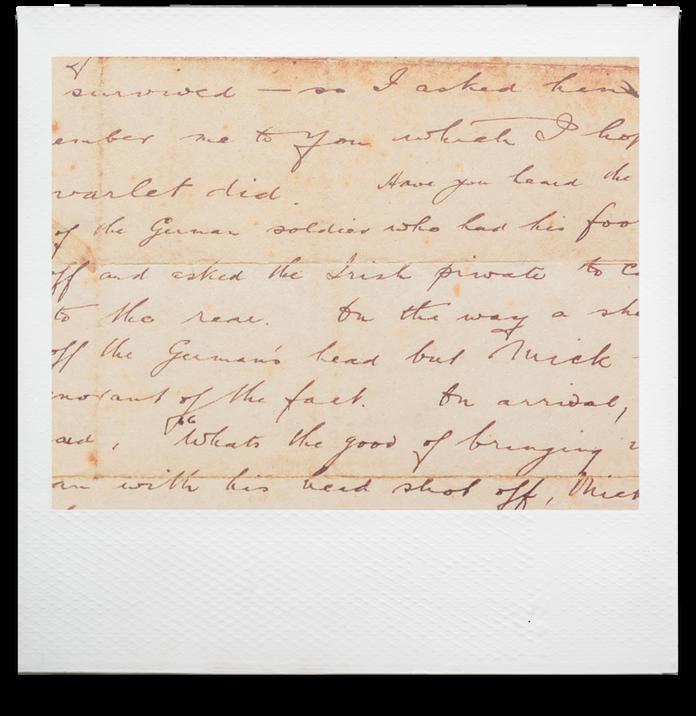 survived — so I asked him
ember me to you which I hop
varlet did. Have you heard the
of the German soldier who had his foo
off and asked the Irish private to ca
to the rear. On the way a she
off the German's head but Mick
norant of the fact. On arrival,
aid, "Whats the good of bringing
an with his head shot off, Mick